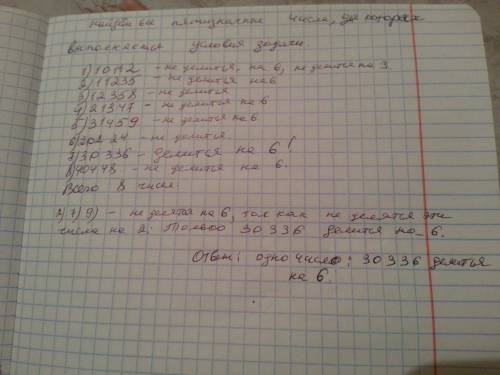 Найдём все пятизначные числа, для которых
выполняется условия задачи.
1) 10112 - не делится на 6, не делится на 3.
2) 11235 - не делится на 6
3) 12358 - не делится
4) 21347 - не делится на 6
5) 31459 - не делится на 6
6) 20224 - не делится.
7) 30336 - делится на 6!
8) 40448 - не делится на 6.
Всего 8 чисел.
не делятся на 6, так как не делятся эти
числа на 2. Только 30336 делится на 6.
Ответ: одно число: 30336 делится
на 6.